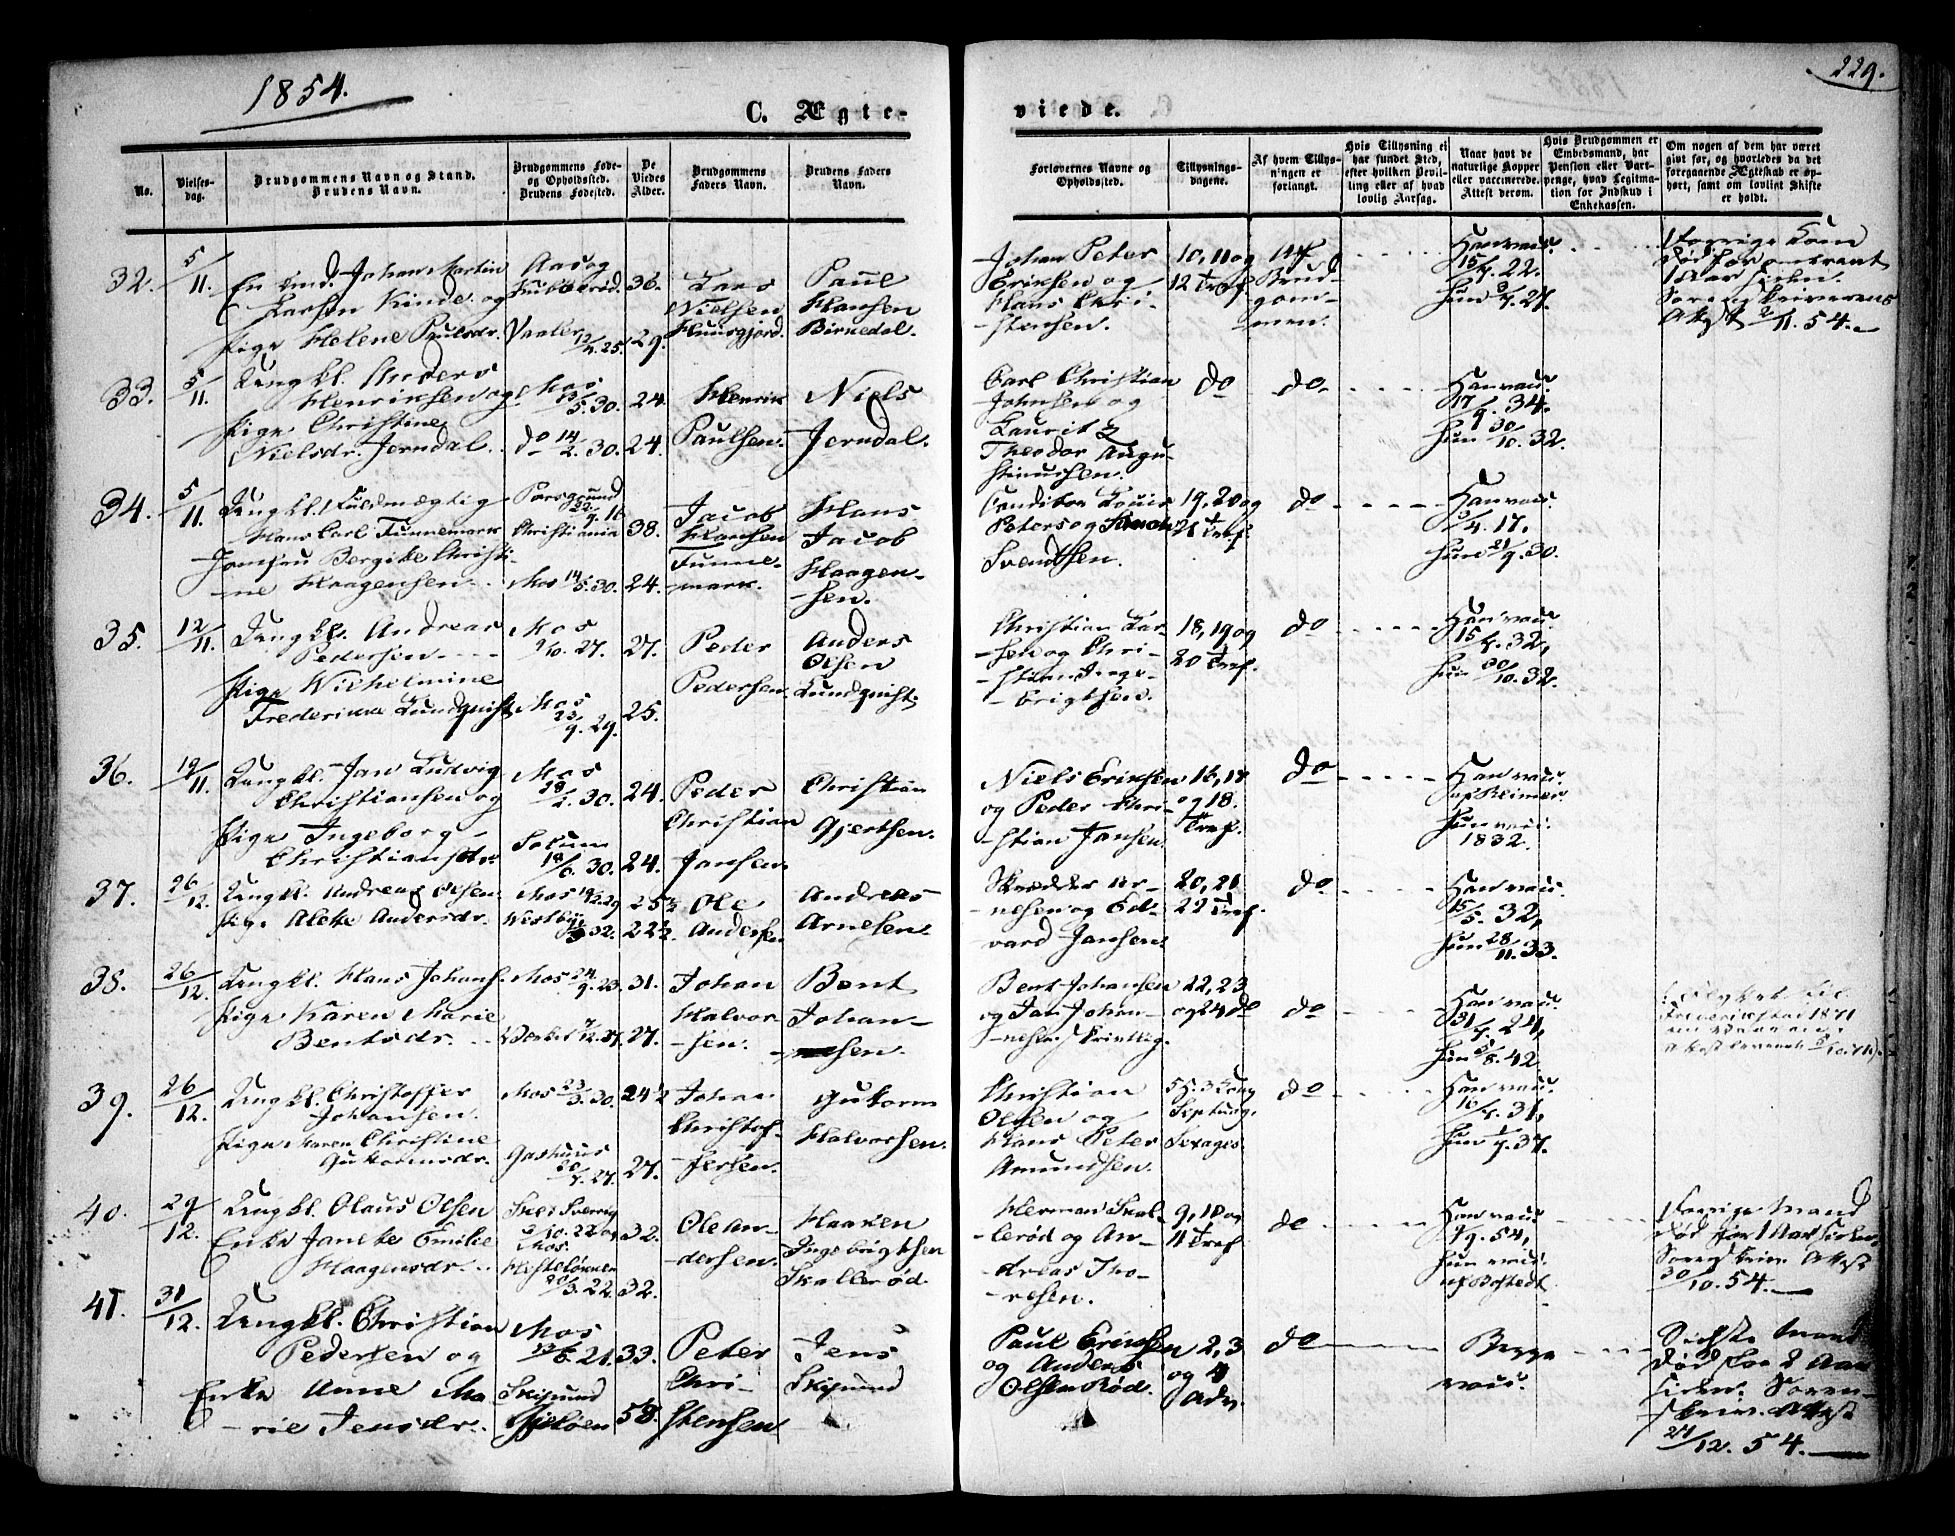 1854.
229.
C. Ægte-
viede.
No.
Vielses-
dag.
Brudgommens Navn og Stand.
Brudens Navn.
Brudgommens Føde-
og Opholdssted.
Brudens Fødested.
De
Viedes
Alder.
Brudgommens
Faders Navn.
Brudens Faders
Navn.
Forlovernes Navne og
Opholdssted.
Tillysnings-
dagene.
Af hvem Tillys-
ningen er
forlangt.
Hvis Tillysning ei
har fundet Sted,
efter hvilken Bevil-
ling eller af hvad
lovlig Aarsag.
Naar havt de
naturlige Kopper
eller vaccinerede.
Attest derom.
Hvis Brudgommen er
Embedsmand, har
Pension eller Vart-
penge, hvad Legitima-
tion for Indskud i
Enkekassen.
Om nogen af dem har været
givt før, og hvorledes da det
foregaaende Ægteskab er op-
hørt, samt om lovligt Skifte
er holdt.
32.
5/11.
Enkmd. Johan Martin
Larsen Kinde og
Pige Helene Paulsdr.
Aas og
Vaaler 12/4. 25.
36.
29.
Lars
Nielsen
Huusgjord.
Paul
Hansen
Birkedal.
Johan Peter
Eriksen og
Hans Chri-
stensen.
10, 11 og
12 Tref.
Af
Brud-
gom-
men.
Han vacc.
15/7. 22.
Hun 3/7. 27.
Død for omtrent
1 Aar siden.
Sorenskriverens
Attest 2/11. 54.
33.
5/11.
Ungkl. Anders
Henriksen og
Pige Christine
Nielsdr. Jerndal.
Mos
13/5. 30.
do 14/2. 30.
24.
24.
Henrik
Paulsen.
Niels
Jerndal.
Carl Christian
Johnsen og
Laurits
Theodor Augu-
stinussen.
do
do
Han vacc.
17/9. 34.
Hun 30/10. 32.
34.
5/11.
Ungkl. Fuldmægtig
Hans Carl Tunnemark
Jomfru Bergithe Christi-
ne Haagensen.
Porsgrund
22/9. 16
Christiania
Mos 14/5. 30.
38.
24.
Jacob
Hansen
Tunne-
mark.
Hans
Jacob
Haagen-
sen.
Conditor Louis
Peters og
Svendsen.
19, 20 og
21 Tref.
do
Han vacc.
5/4. 17.
Hun 21/9. 30.
35.
12/11.
Ungkl. Andreas
Pedersen
Pige Wilhelmine
Frederikke Lundqvist
Mos
9/10. 27.
Mos
23/9. 29.
27.
25.
Peder
Pedersen.
Anders
Olsen
Lundqvist.
Christian Lar-
sen og Chri-
stian Inge-
brigtsen.
18, 19 og
20 Tref.
do
Han vacc.
15/7. 32,
Hun 30/10. 32.
36.
19/11.
Ungkl. Jan Ludvig
Christiansen og
Pige Ingeborg
Christiansdr.
Mos
28/2. 30.
Solum
18/6. 30.
24.
24.
Peder
Christian
Jansen.
Christian
Gjertsen.
Niels Eriksen
og Peder Chri-
stian Jansen.
16, 17
og 18.
Tref.
do
Han vacc.
af Reimer.
Hun vacc.
1832.
37.
26/12.
Ungkl. Andreas Olsen.
Pige Aleke Andersdr.
Mos 19/2. 29
Westby 32.
25 1/2
22 1/2.
Ole
Andersen.
Andreas
Arnesen.
Skrædder Ar-
nesen og Ed-
vard Jansen.
20, 21
22 Tref.
do
Han vacc.
15/5. 32,
Hun 28/11. 33.
38.
26/12.
Ungkl. Hans Johans.
Pige Karen Marie
Bentsdr.
Mos 24/9. 23.
Værket 7/12. 27.
31.
27.
Johan
Halvor-
sen.
Bent
Johan-
nesen.
Bent Johansen
og Jan Johan-
nesen
22, 23
og 24 do
do
Han vacc.
31/7. 24,
Hun 5/8. 42
Flyttet til
Frederikstad 1871
39.
26/12.
Ungkl. Christoffer
Johansen.
Pige Maren Christine
Gutormsdr.
Mos 23/3. 30.
Gashuus
20/7. 27.
24 1/2
27.
Johan
Christof-
fersen.
Gutorm
Halvorsen.
Christian
Olsen og
Hans Peter
Amundsen.
5 H. 3 Kong
Septuag.
Sexages.
do
Han vacc.
16/7. 31,
Hun 1/7. 37.
40.
29/12.
Ungkl. Olaus Olsen
Enke Janeke Emilie
Haagensdr.
Skee Sverrig
5/10. 22 og
Mos.
Hesteløkken
20/3. 22.
32.
32.
Ole An-
dersen.
Haaken
Ingebrigtsen
Skallerød.
Herman Skal-
lerød og An-
dreas Tho-
resen.
9, 10 og
11 Tref.
do
Han vacc.
7/9. 54,
Hun vacc.
af Bostedt
1 forrige Mand
død for 1 Aar siden.
Sorenskriv. Attest
30/10. 54.
41.
31/12.
Ungkl. Christian
Pedersen og
Enke Anne Ma-
rie Jensdr.
Mos
13/6. 21.
Skipsund
Gjeløen
33.
58.
Peter
Chri-
stensen
Jens
Skipsund
Paul Eriksen
og Anders
Olsen Rød.
2, 3
og 4
Adv.
do
Begge
vacc.
Sidste Mand
død for 2 Aar
siden. Soren-
skriv. Attest
21/12. 54.